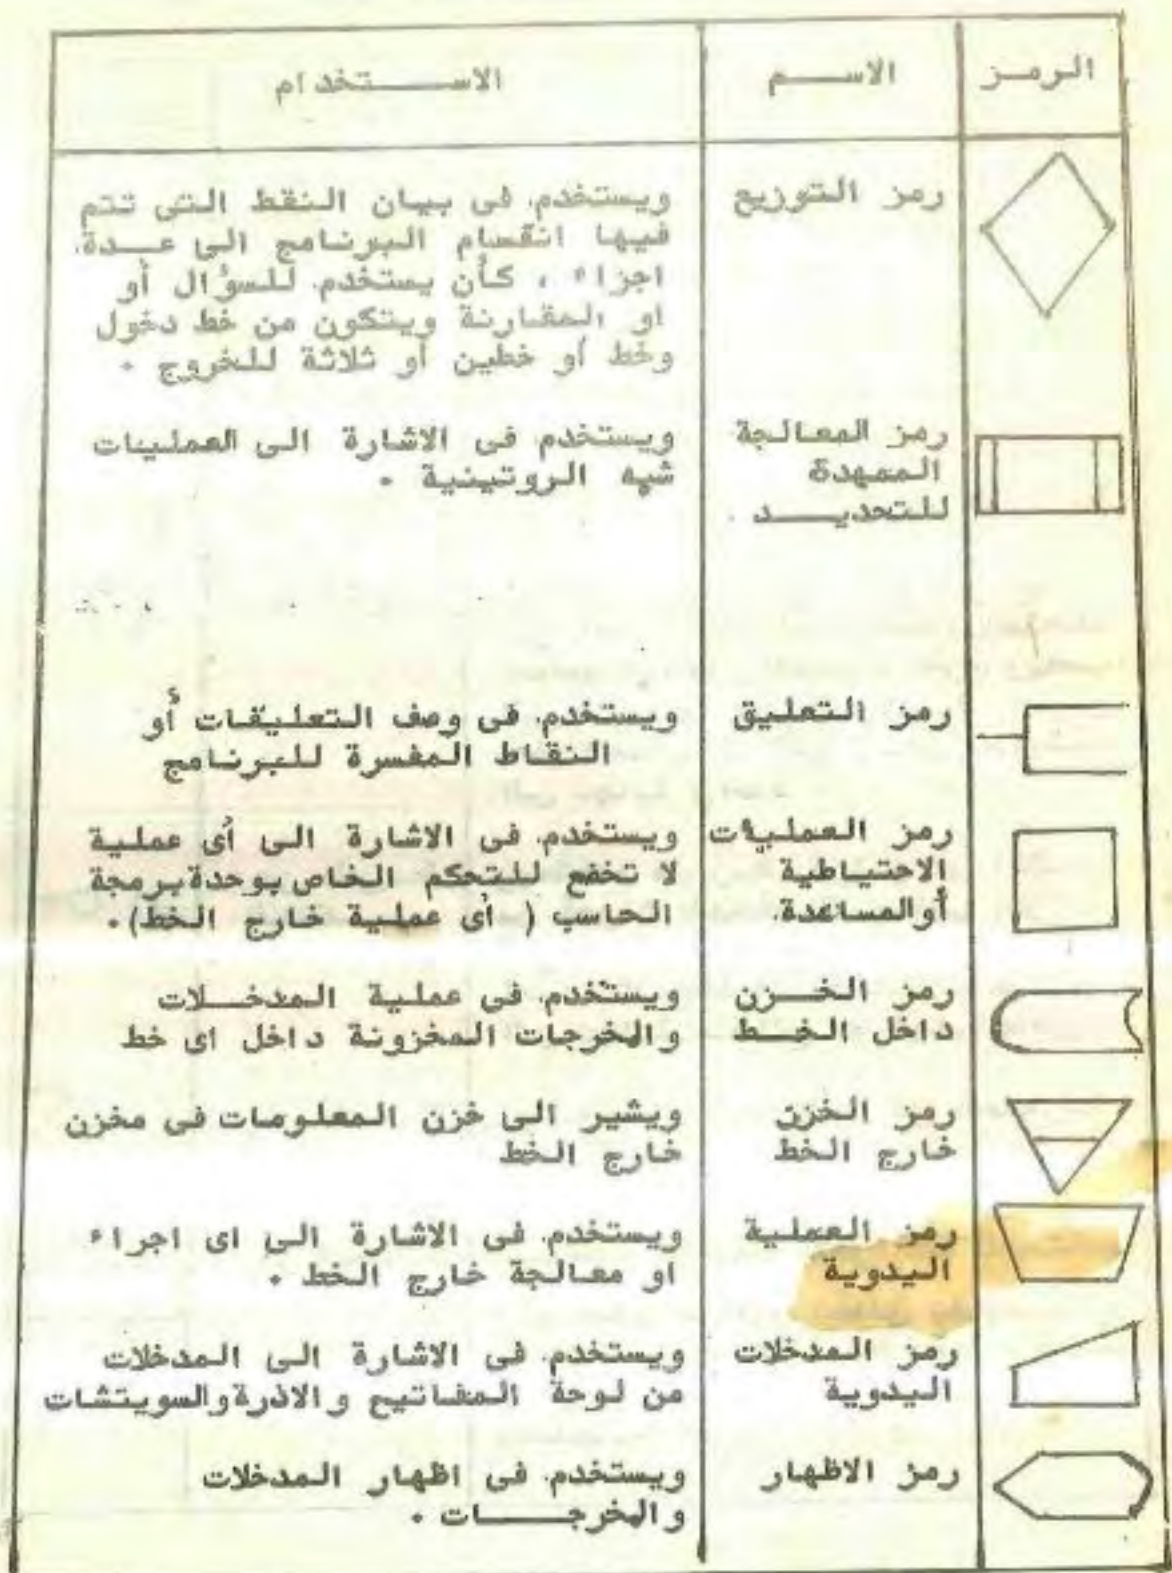 الرمز الاسم الاستخدام
رمز التوزيع
ويستخدم فى بيان النقط التى تتم
فيها انقسام البرنامج الى عدة
اجزاء ، كأن يستخدم للسؤال أو
او المقارنة ويتكون من خط دخول
وخط أو خطين أو ثلاثة للخروج .
رمز المعالجة
الممهدة
للتحديد .
ويستخدم فى الاشارة الى العمليات
شبه الروتينية .
رمز التعليق
ويستخدم فى وصف التعليقات أو
النقاط المفسرة للبرنامج
رمز العمليات
الاحتياطية
أو المساعدة.
ويستخدم فى الاشارة الى أى عملية
لا تخفع للتحكم الخاص بوحدة برمجة
الحاسب ( أى عملية خارج الخط).
رمز الخزن
داخل الخط
ويستخدم فى عملية المدخلات
والمخرجات المخزونة داخل اى خط
رمز الخزن
خارج الخط
ويشير الى خزن المعلومات فى مخزن
خارج الخط
رمز العملية
اليدوية
ويستخدم فى الاشارة الى اى اجراء
او معالجة خارج الخط .
رمز المدخلات
اليدوية
ويستخدم فى الاشارة الى المدخلات
من لوحة المفاتيح والاذرة والسويتشات
رمز الاظهار
ويستخدم فى اظهار المدخلات
والمخرجات .